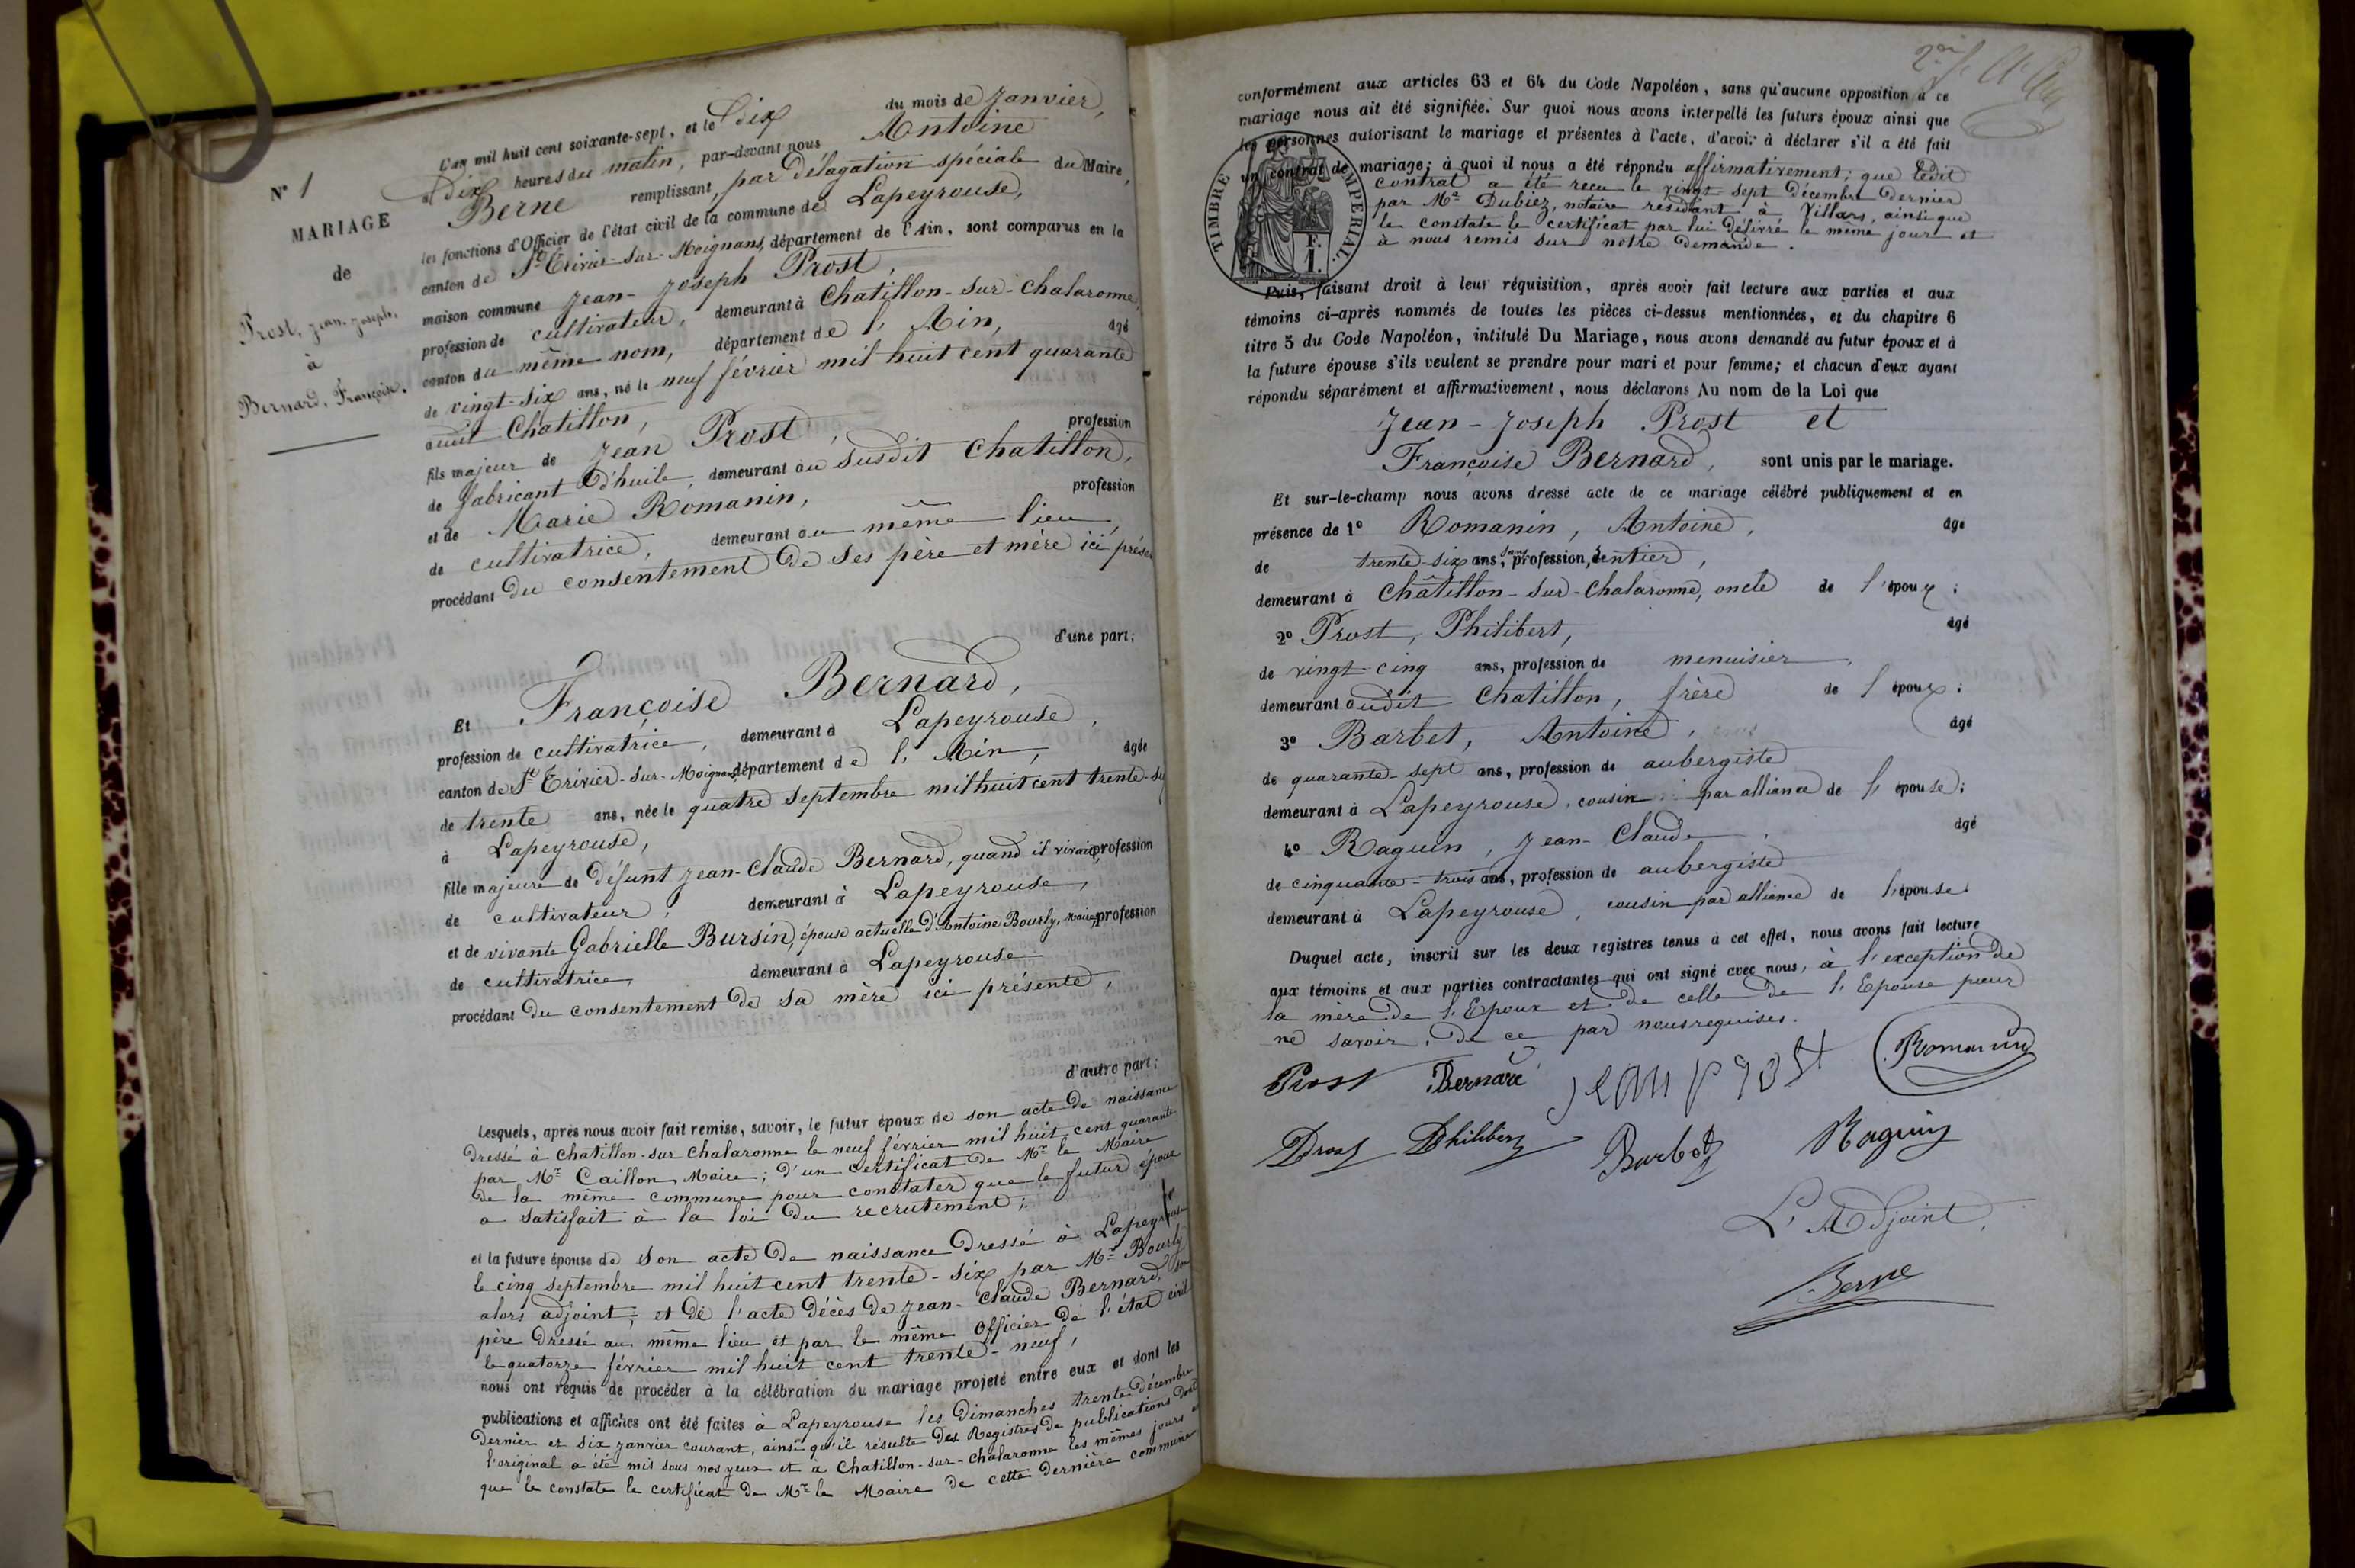 N° 1
MARIAGE
de
Prost, Jean-Joseph,
à
Bernard, Françoise.
L'an mil huit cent soixante-sept, et le dix du mois de Janvier,
à dix heures du matin, par-devant nous Antoine
Berne remplissant, par délagation spéciale du Maire,
les fonctions d'Officier de l'état civil de la commune de Lapeyrouse,
canton de St Trivier-sur-Moignans, département de l'Ain, sont comparus en la
maison commune Jean-Joseph Prost,
profession de cultivateur, demeurant à Chatillon-sur-Chalaronne,
canton du même nom, département de l'Ain, âgé
de vingt-six ans, né le neuf février mil huit cent quarante
audit Chatillon,
fils majeur de Jean Prost, profession
de fabricant d'huile, demeurant au susdit Chatillon,
et de Marie Romanin, profession
de cultivatrice, demeurant au même lieu,
procédant du consentement de ses père et mère ici
d'une part;
Et Françoise Bernard,
profession de cultivatrice, demeurant à Lapeyrouse,
canton de St Trivier-sur-Moignans, département de l'Ain, âgée
de trente ans, née le quatre septembre mil huit cent trente-six
à Lapeyrouse,
fille majeure de défunt Jean-Claude Bernard, quand il vivait, profession
de cultivateur, demeurant à Lapeyrouse,
et de vivante Gabrielle Bursin, épouse actuelle d'Antoine Bourly, Maire, profession
de cultivatrice, demeurant à Lapeyrouse
procédant du consentement de sa mère ici présente,
d'autre part;
Lesquels, après nous avoir fait remise, savoir, le futur époux de son acte de naissance
dressé à Chatillon-sur-Chalaronne le neuf février mil huit cent quarante
par Mr Caillon, Maire; d'un certificat de Mr le Maire
de la même commune pour constater que le futur époux
a satisfait à la loi du recrutement;
et la future épouse de son acte de naissance dressé à Lapeyrouse
le cinq septembre mil huit cent trente-six par Mr Bourly
alors adjoint; et de l'acte décès de Jean-Claude Bernard, son
père dressé au même lieu et par le même Officier de l'état civil
le quatorze février mil huit cent trente-neuf,
nous ont requis de procéder à la célébration du mariage projeté entre eux et dont les
publications et affiches ont été faites à Lapeyrouse les Dimanches trente décembre
dernier et six janvier courant, ainsi qu'il résulte des Registres de publications dont
l'original a été mis sous nos yeux et à Chatillon-sur-Chalaronne les mêmes jours
que le constate le certificat de Mr le Maire de cette dernière commune
conformément aux articles 63 et 64 du Code Napoléon, sans qu'aucune opposition à ce
mariage nous ait été signifiée. Sur quoi nous avons interpellé les futurs époux ainsi que
les personnes autorisant le mariage et présentes à l'acte, d'avoir à déclarer s'il a été fait
un contrat de mariage; à quoi il nous a été répondu affirmativement; que ledit
contrat a été reçu le vingt-sept décembre dernier
par Me Dubiez, notaire résidant à Villars, ainsi que
le constate le certificat par lui délivré le même jour et
à nous remis sur notre demande.
TIMBRE IMPERIAL.
F.
1.
Puis, faisant droit à leur réquisition, après avoir fait lecture aux parties et aux
témoins ci-après nommés de toutes les pièces ci-dessus mentionnées, et du chapitre 6
titre 5 du Code Napoléon, intitulé Du Mariage, nous avons demandé au futur époux et à
la future épouse s'ils veulent se prendre pour mari et pour femme; et chacun d'eux ayant
répondu séparément et affirmativement, nous déclarons Au nom de la Loi que
Jean-Joseph Prost et
Françoise Bernard, sont unis par le mariage.
Et sur-le-champ nous avons dressé acte de ce mariage célébré publiquement et en
présence de 1° Romanin, Antoine, âgé
de trente-six ans, sans profession, rentier,
demeurant à Châtillon-sur-Chalaronne, oncle de l'époux;
2° Prost, Philibert, âgé
de vingt-cinq ans, profession de menuisier,
demeurant audit Chatillon, frère de l'époux;
3° Barbet, Antoine, âgé
de quarante-sept ans, profession de aubergiste
demeurant à Lapeyrouse, cousin par alliance de l'épouse;
4° Raguin, Jean-Claude, âgé
de cinquante-trois ans, profession de aubergiste
demeurant à Lapeyrouse, cousin par alliance de l'épouse
Duquel acte, inscrit sur les deux registres tenus à cet effet, nous avons fait lecture
aux témoins et aux parties contractantes qui ont signé avec nous, à l'exception de
la mère de l'Epoux et de celle de l'Epouse pour
ne savoir, de ce par nous requises.
Prost Bernard Jean Prost Romanin
Prost Philibert Barbet Raguin
L'Adjoint,
Berne